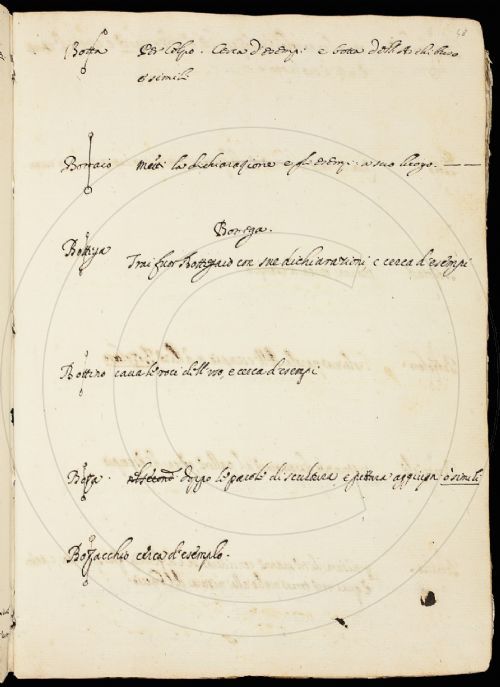 58
Botta Per Colpo. Cerca d'esempi e botta dell'Archibuso
e simili
Bottaio metti la dichiarazione e gli esempi a suo luogo.
Bottega.
Bottega Trai fuor Bottegaio con sue dichiarazioni, e cerca d'esempi
Bottino cava le voci dell'uso, e cerca d'esempi
doppo le parole di scultura e pittura aggiugni ò simili
Bozzacchio cerca d'esemplo.